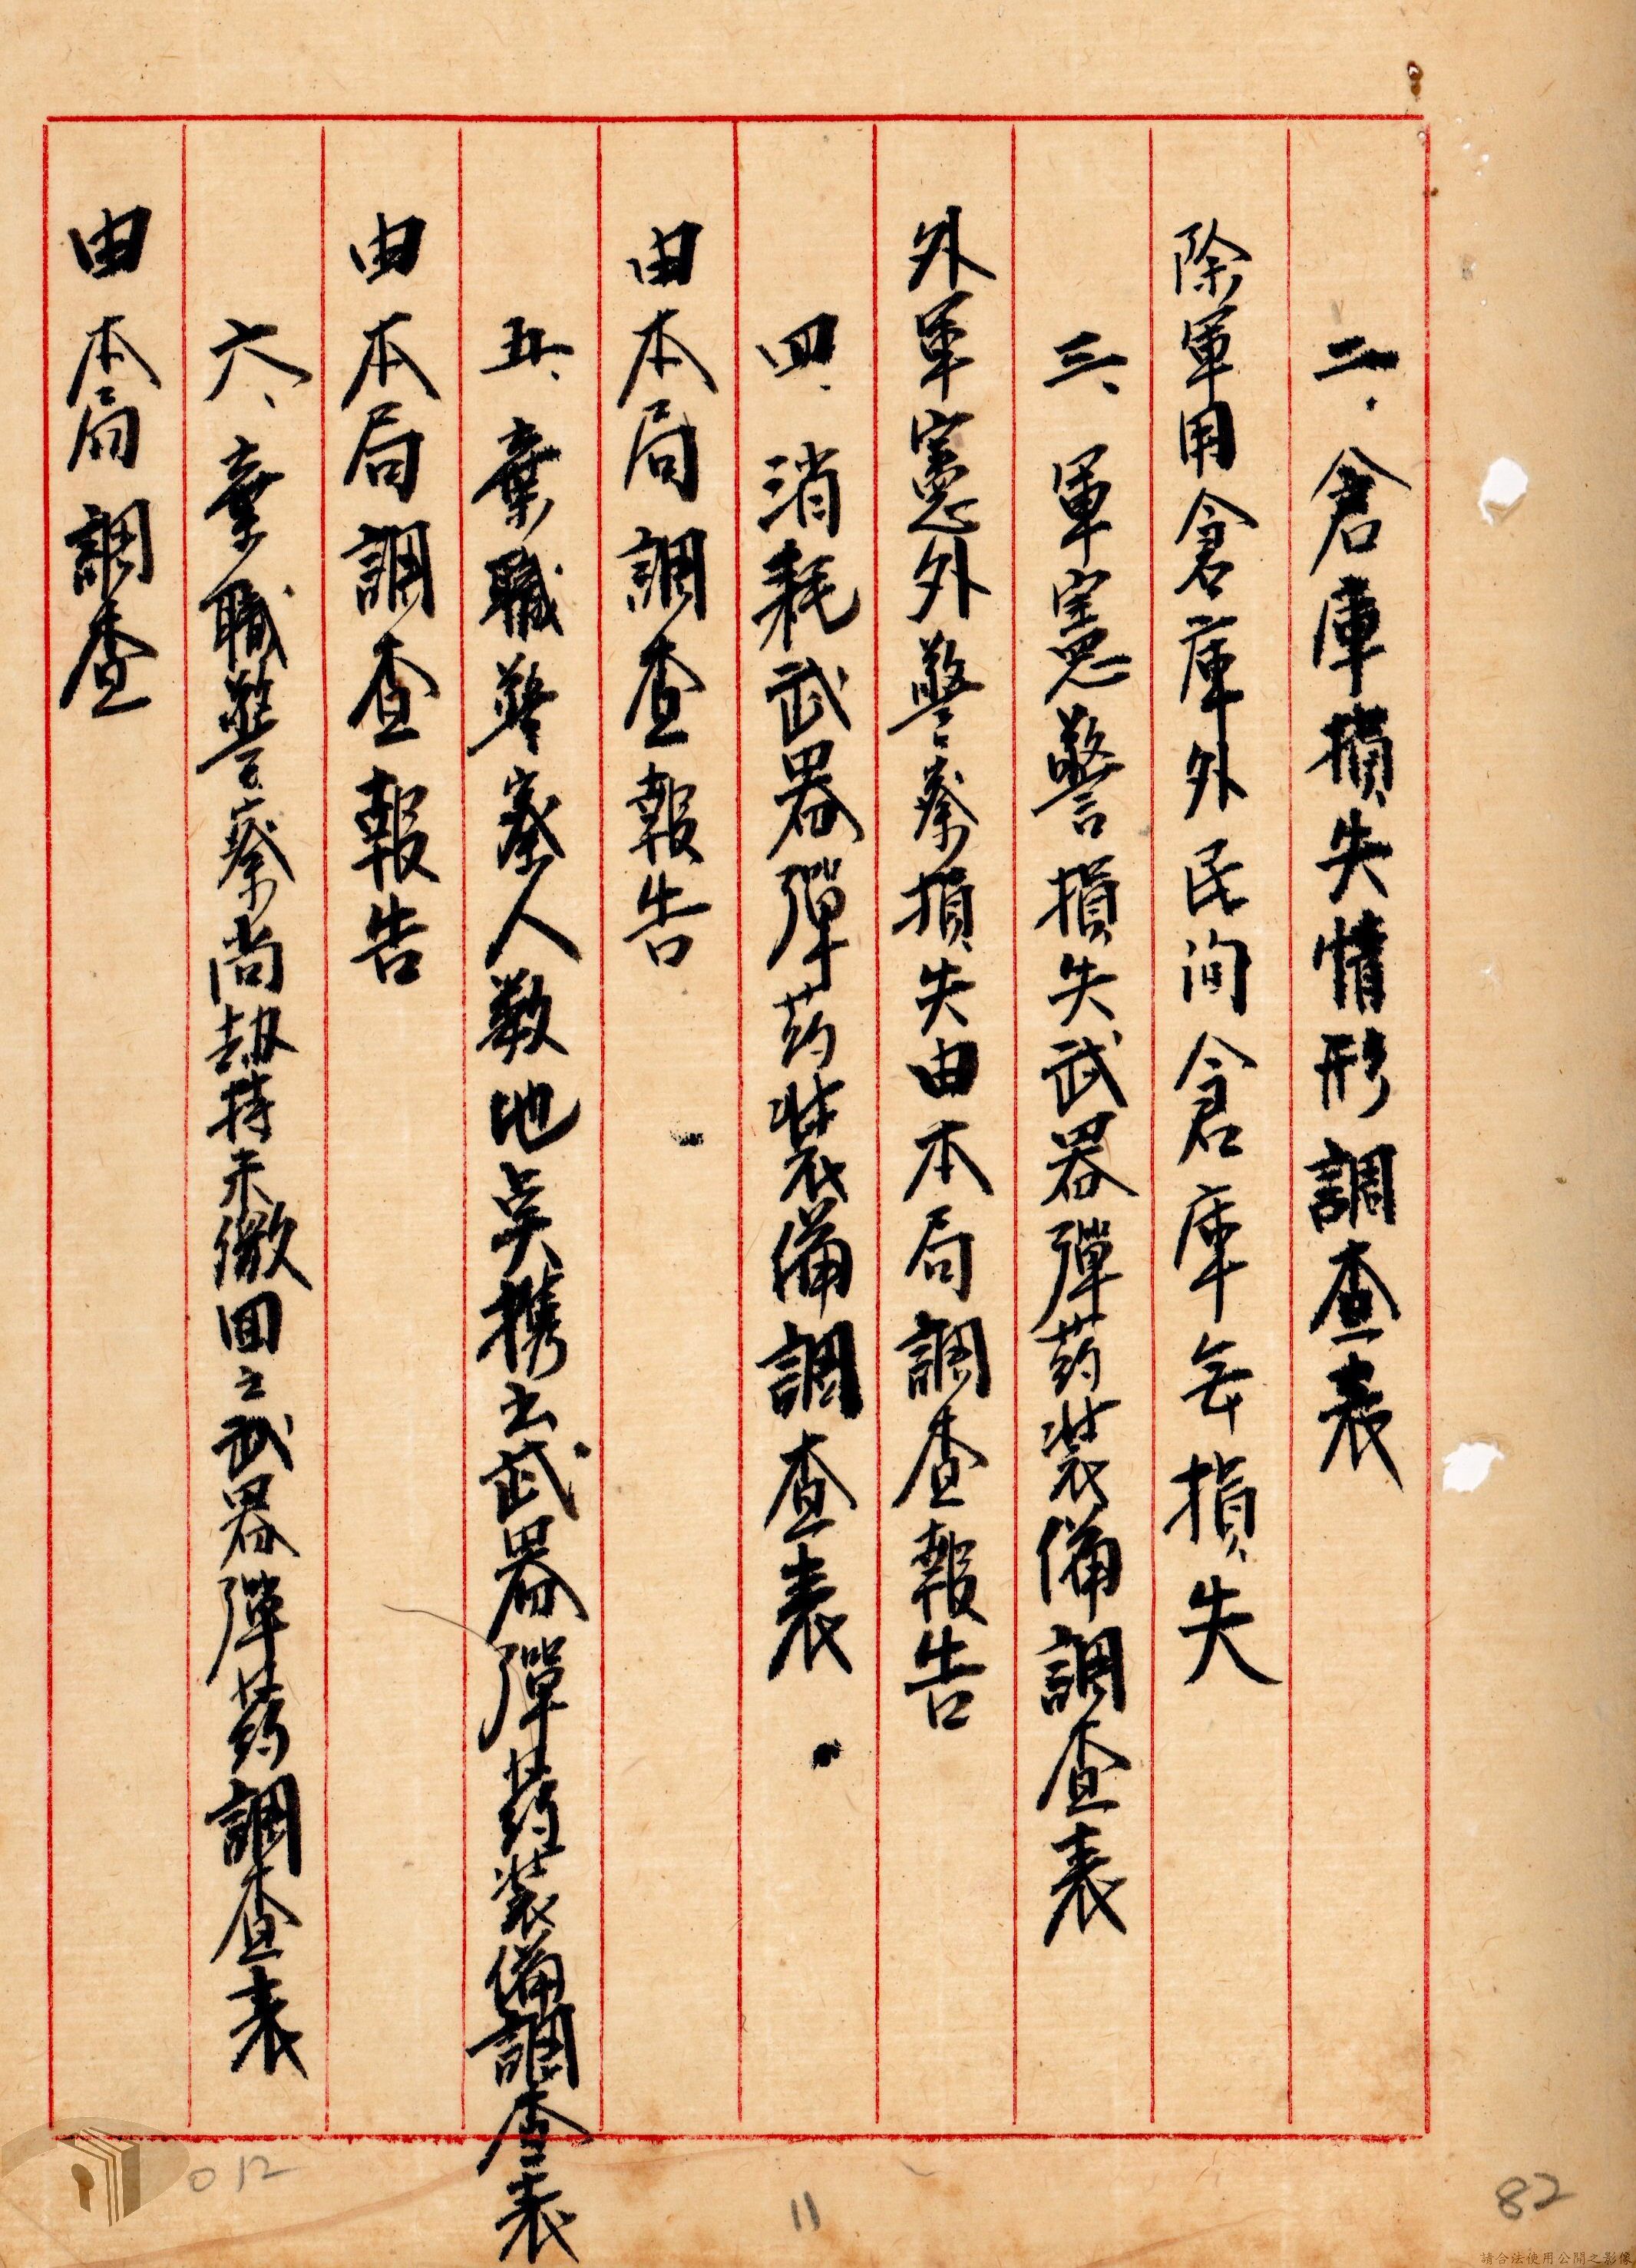 二.倉庫損失情形調查表
除軍用倉庫外民间倉庫無損失
三、軍憲警損失武器彈药装備調查表
外軍憲外警察損失由本局調查報告
四.消耗武器彈药装備調查表
由本局調查報告
五、棄職警察人数地點携出武器彈药装備調查表
由本局調查報告
六、棄職警察尚劫持未繳回之武器彈药調查表
由本局調查
012
11
82
請合法使用公開之影像